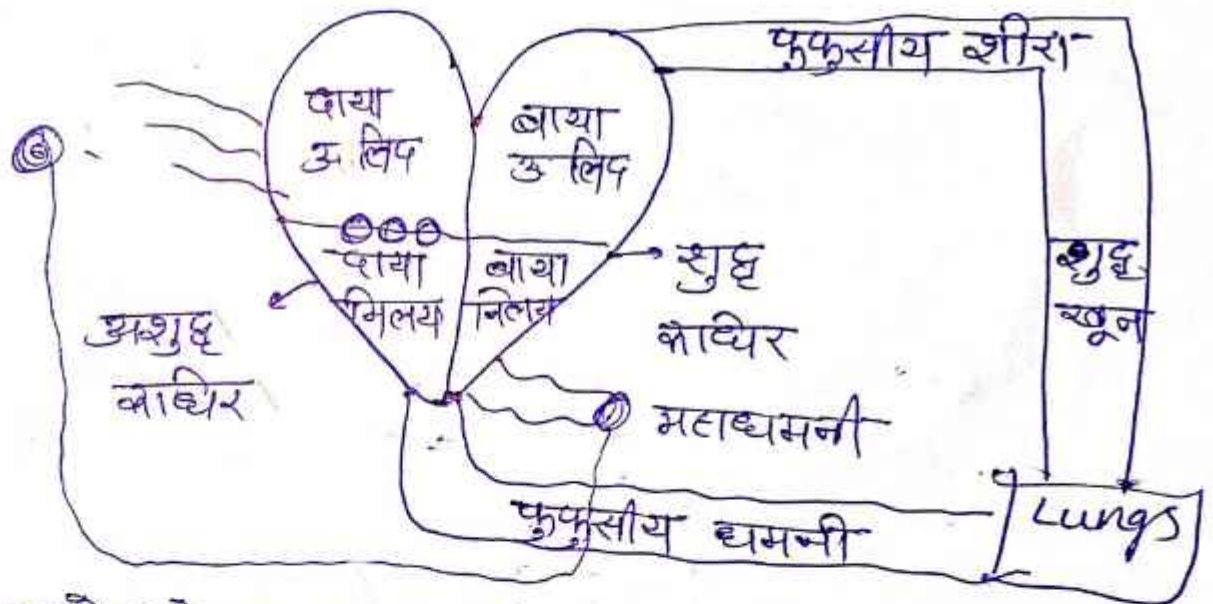 फुफुसीय शीरा
दाया
अलिंद
बाया
अलिंद
दाया
निलय
बाया
निलय
शुद्ध
रूधिर
अशुद्ध
रूधिर
शुद्ध
खून
महाधमनी
फुफुसीय धमनी
Lungs